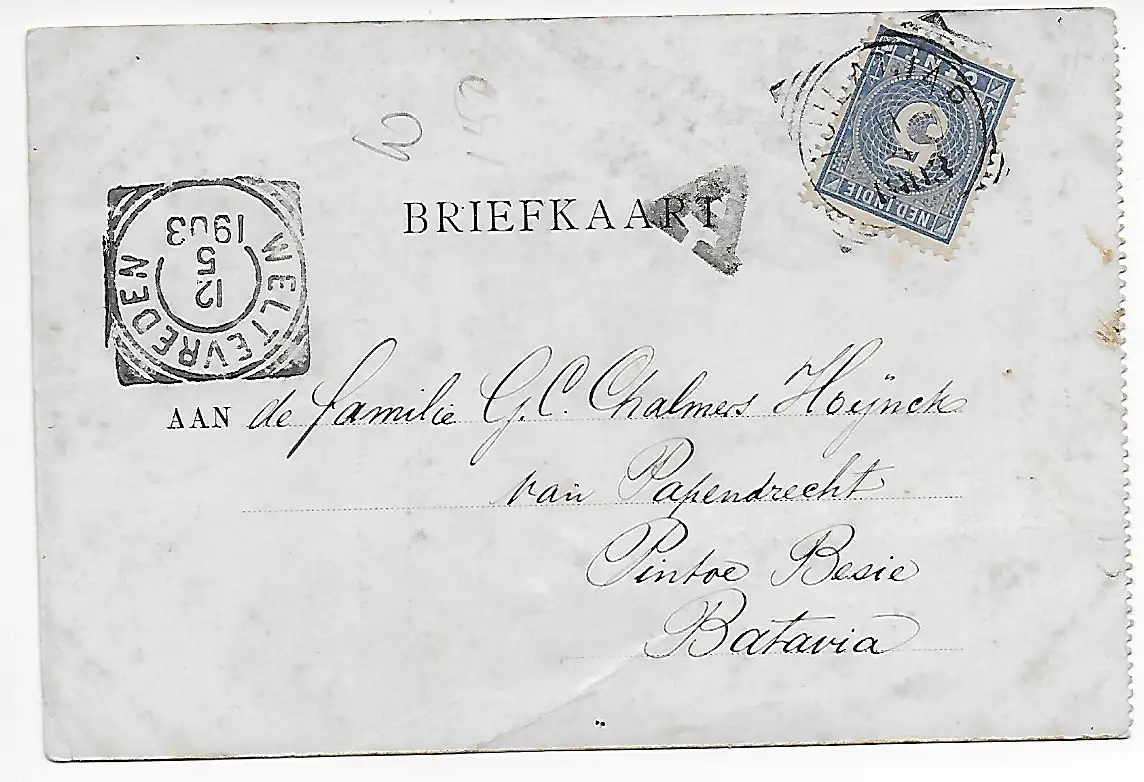 5
CENT
NED-INDIË
BRIEFKAART
T
WELTEVREDEN
12
5
1903
AAN de familie G. C. Chalmers Hoÿnck
van Papendrecht
Pintoe Besie
Batavia